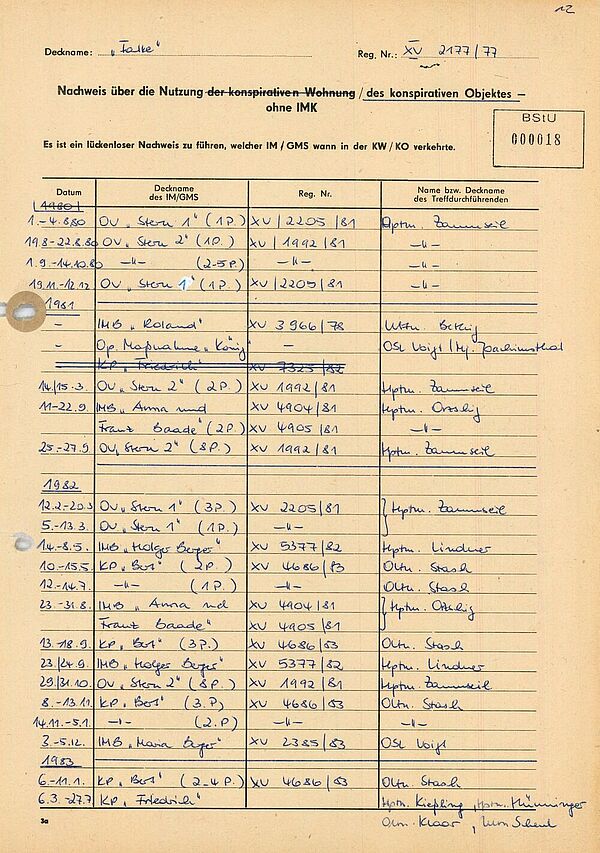 12
Deckname: „Falke“ Reg. Nr.: XV 2177/77
Nachweis über die Nutzung der konspirativen Wohnung / des konspirativen Objektes –
ohne IMK
BStU
000018
Es ist ein lückenloser Nachweis zu führen, welcher IM / GMS wann in der KW / KO verkehrte.
Datum Deckname des IM/GMS Reg. Nr. Name bzw. Deckname des Treffdurchführenden
1980
1.-4.8.80 OV „Stern 1“ (1P.) XV/2205/81 Hptm. Zaumseil
19.8-22.8.80 OV „Stern 2“ (1P.) XV/1992/81 -"-
1.9.-14.10.80 -"- (2-5P.) -"- -"-
19.11.-12.12. OV „Stern 1“ (1P.) XV/2205/81 -"-
1981
- IMB „Roland“ XV 3966/78
- Op. Maßnahme „König“ - OSL Voigt / Mj. Joachimsthal
KP „Friedrich“ XV 7325/82
14./15.3. OV „Stern 2“ (2P.) XV 1992/81 Hptm. Zaumseil
11-22.9. IMB „Anna und XV 4904/81 Hptm.
Franz Baade“ (2P.) XV 4905/81 -"-
25.-27.9. OV „Stern 2“ (8P.) XV 1992/81 Hptm. Zaumseil
1982
12.2.-20.3 OV „Stern 1“ (3P.) XV 2205/81 Hptm. Zaumseil
5.-13.3. OV „Stern 1“ (1P.) -"-
14.-8.5. IMB „Holger Berger“ XV 5377/82 Hptm. Lindner
10.-15.5. KP „Bert“ (2P.) XV 4686/83 Oltn. Stash
12.-14.7. -"- (1P.) -"- Oltn. Stash
23.-31.8. IMB „Anna und XV 4904/81 Hptm.
Franz Baade“ XV 4905/81
13.-18.9. KP „Bert“ (3P.) XV 4686/83 Oltn. Stash
23./24.9. IMB „Holger Berger“ XV 5377/82 Hptm. Lindner
29/31.10. OV „Stern 2“ (8P.) XV 1992/81 Hptm. Zaumseil
8.-13.11. KP „Bert“ (3.P) XV 4686/83 Oltn. Stash
14.11.-5.1. -"- (2.P) -"- -"-
3.-5.12. IMB „Maria Berger“ XV 2385/83 OSL Voigt
1983
6.-11.1. KP „Bert“ (2-4P.) XV 4686/83 Oltn. Stash
6.3.-27.7 KP „Friedrich“ Hptm. Kießling, Hptm. Hünninger
3a Oltn. Klaar